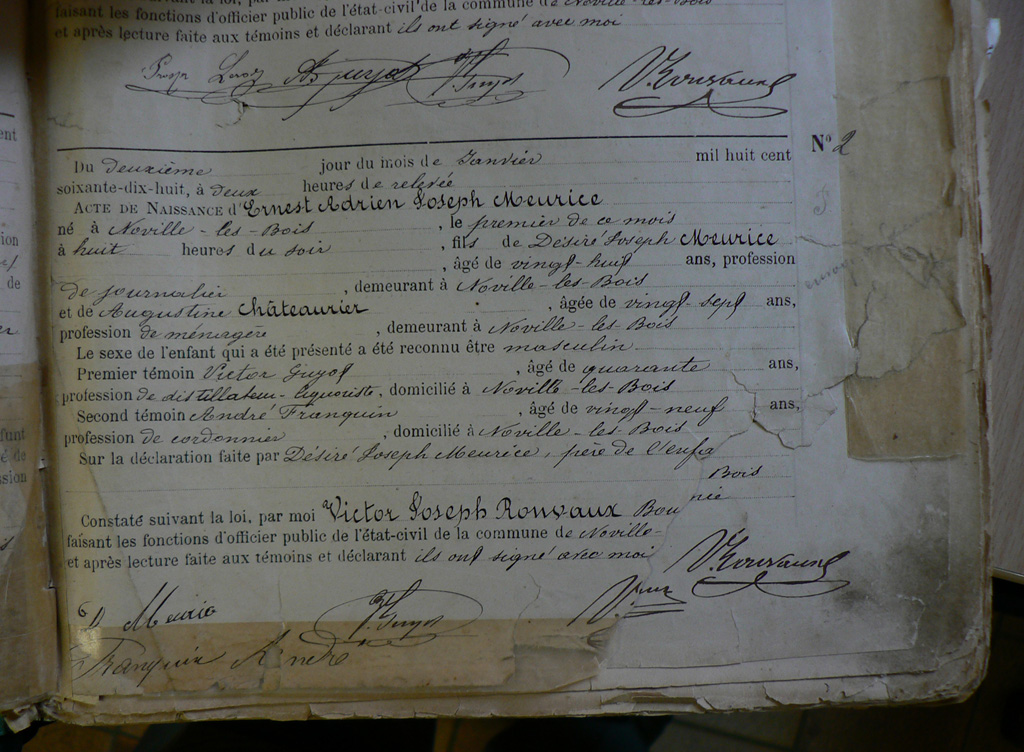 faisant les fonctions d'officier public de l'état-civil de la commune de Noville-les-Bois
et après lecture faite aux témoins et déclarant ils ont signé avec moi
V. Rouvaux
N° 2
Du deuxième jour du mois de Janvier mil huit cent
soixante-dix-huit, à deux heures de relevée
ACTE DE NAISSANCE d'Ernest Adrien Joseph Meurice
né à Noville-les-Bois, le premier de ce mois
à huit heures du soir, fils de Désiré Joseph Meurice
, âgé de vingt-huit ans, profession
de journalier, demeurant à Noville-les-Bois
et de Augustine Châteaurier, âgée de vingt-sept ans,
profession de ménagère, demeurant à Noville-les-Bois
Le sexe de l'enfant qui a été présenté a été reconnu être masculin
Premier témoin Victor Guyot, âgé de quarante ans,
profession de distillateur-liquoriste, domicilié à Noville-les-Bois
Second témoin André Franquin, âgé de vingt-neuf ans,
profession de cordonnier, domicilié à Noville-les-Bois
Sur la déclaration faite par Désiré Joseph Meurice, père de l'enfa
Bois
Constaté suivant la loi, par moi Victor Joseph Rouvaux Bou
faisant les fonctions d'officier public de l'état-civil de la commune de Noville-
et après lecture faite aux témoins et déclarant ils ont signé avec moi
V. Rouvaux
D Meurice V. Guyot
Franquin André